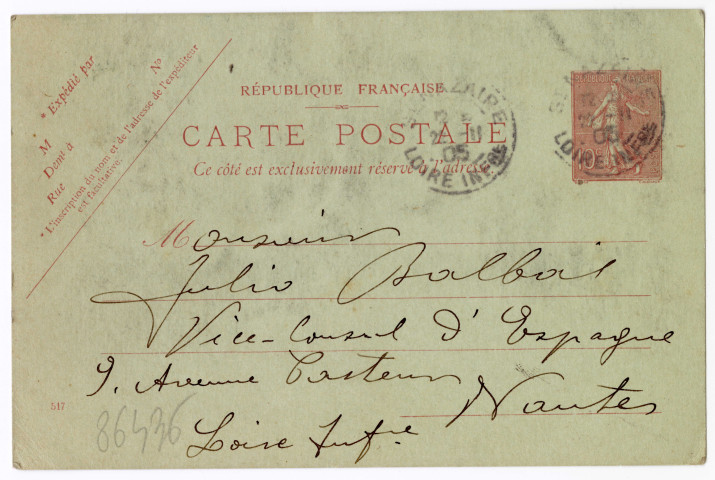 * Expédié par
M
Demt à
Rue
No
* L'inscription du nom et de l'adresse de l'expéditeur
est facultative.
RÉPUBLIQUE FRANÇAISE
CARTE POSTALE
Ce côté est exclusivement réservé à l'adresse.
ST NAZAIRE
05
LOIRE INFRE
RÉPUBLIQUE FRANÇAISE
10
ST NAZAIRE
05
LOIRE INFRE
Monsieur
Julio Balbas
Vice-Consul d'Espagne
9. Avenue Pasteur
Nantes
Loire Infre
517
86436